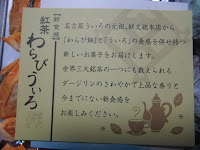 【新発売】
紅茶
わらびういろ
名古屋ういろの元祖、餅文總本店から
「わらび餅」と「ういろ」の食感を併せ持つ
新しいお菓子をお届けします。
世界三大銘茶の一つにも数えられる
ダージリンのさわやかで上品な香りと
今までにない新食感を
お楽しみください。